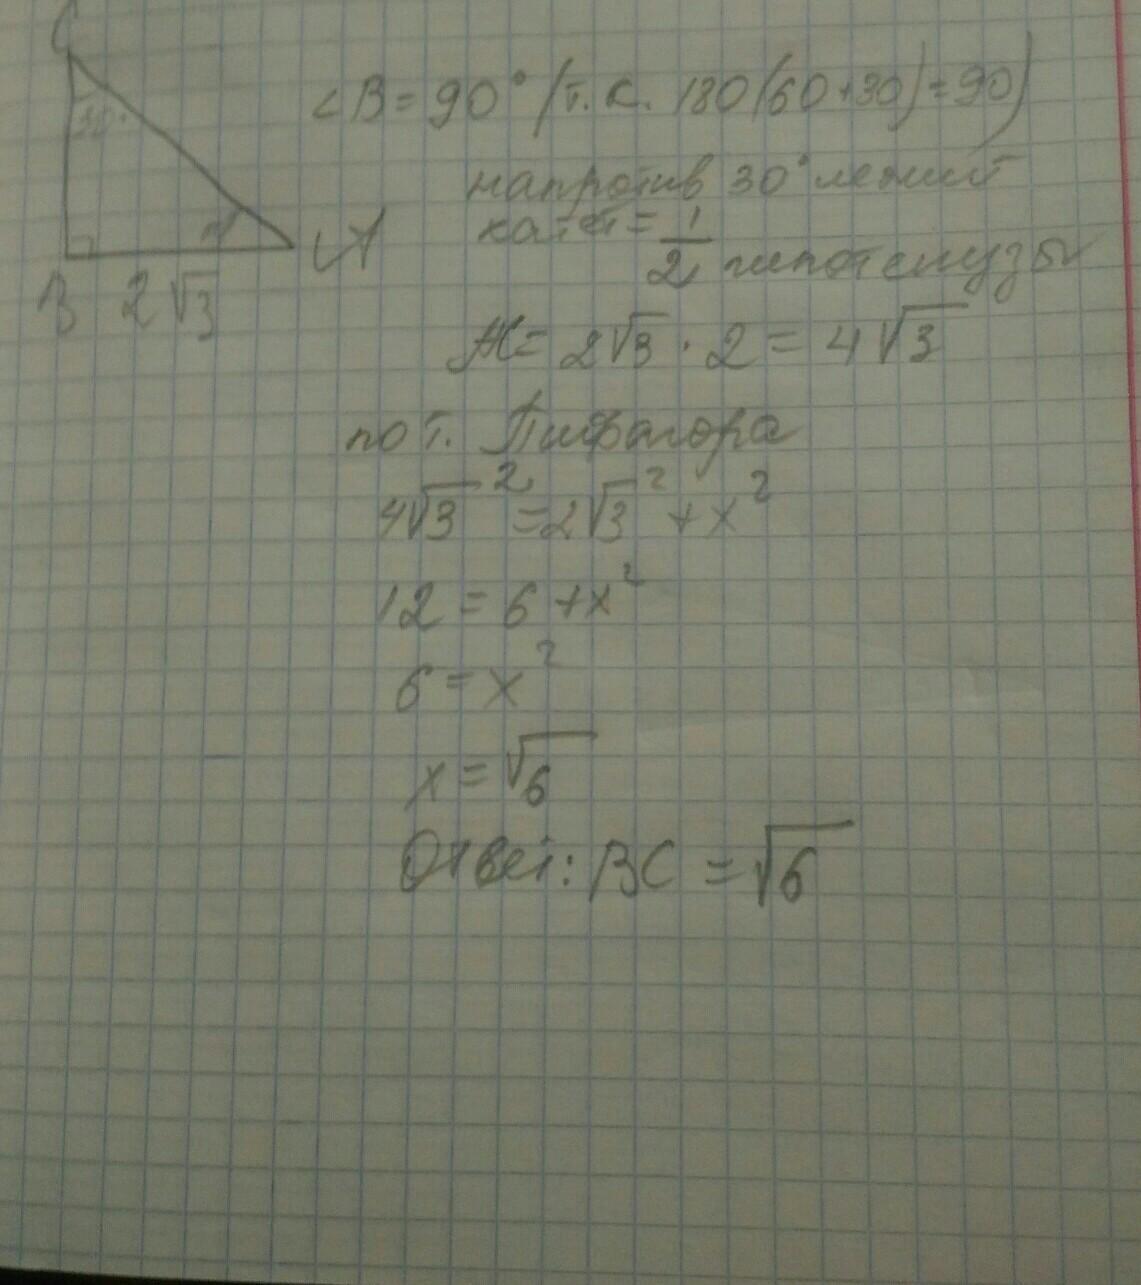 C
∠B = 90° (т.к. 180(60+30)=90)
30°
напротив 30° лежит
катет = 1/2 гипотенузы
A
B 2√3
AC = 2√3 · 2 = 4√3
по т. Пифагора
4√3² = 2√3² + x²
12 = 6 + x²
6 = x²
x = √6
Ответ: BC = √6